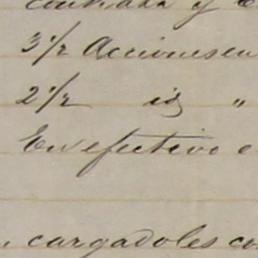 contrata y
3 1/2 Acciones en
2 1/2 id "
En efectivo e
cargadoles co